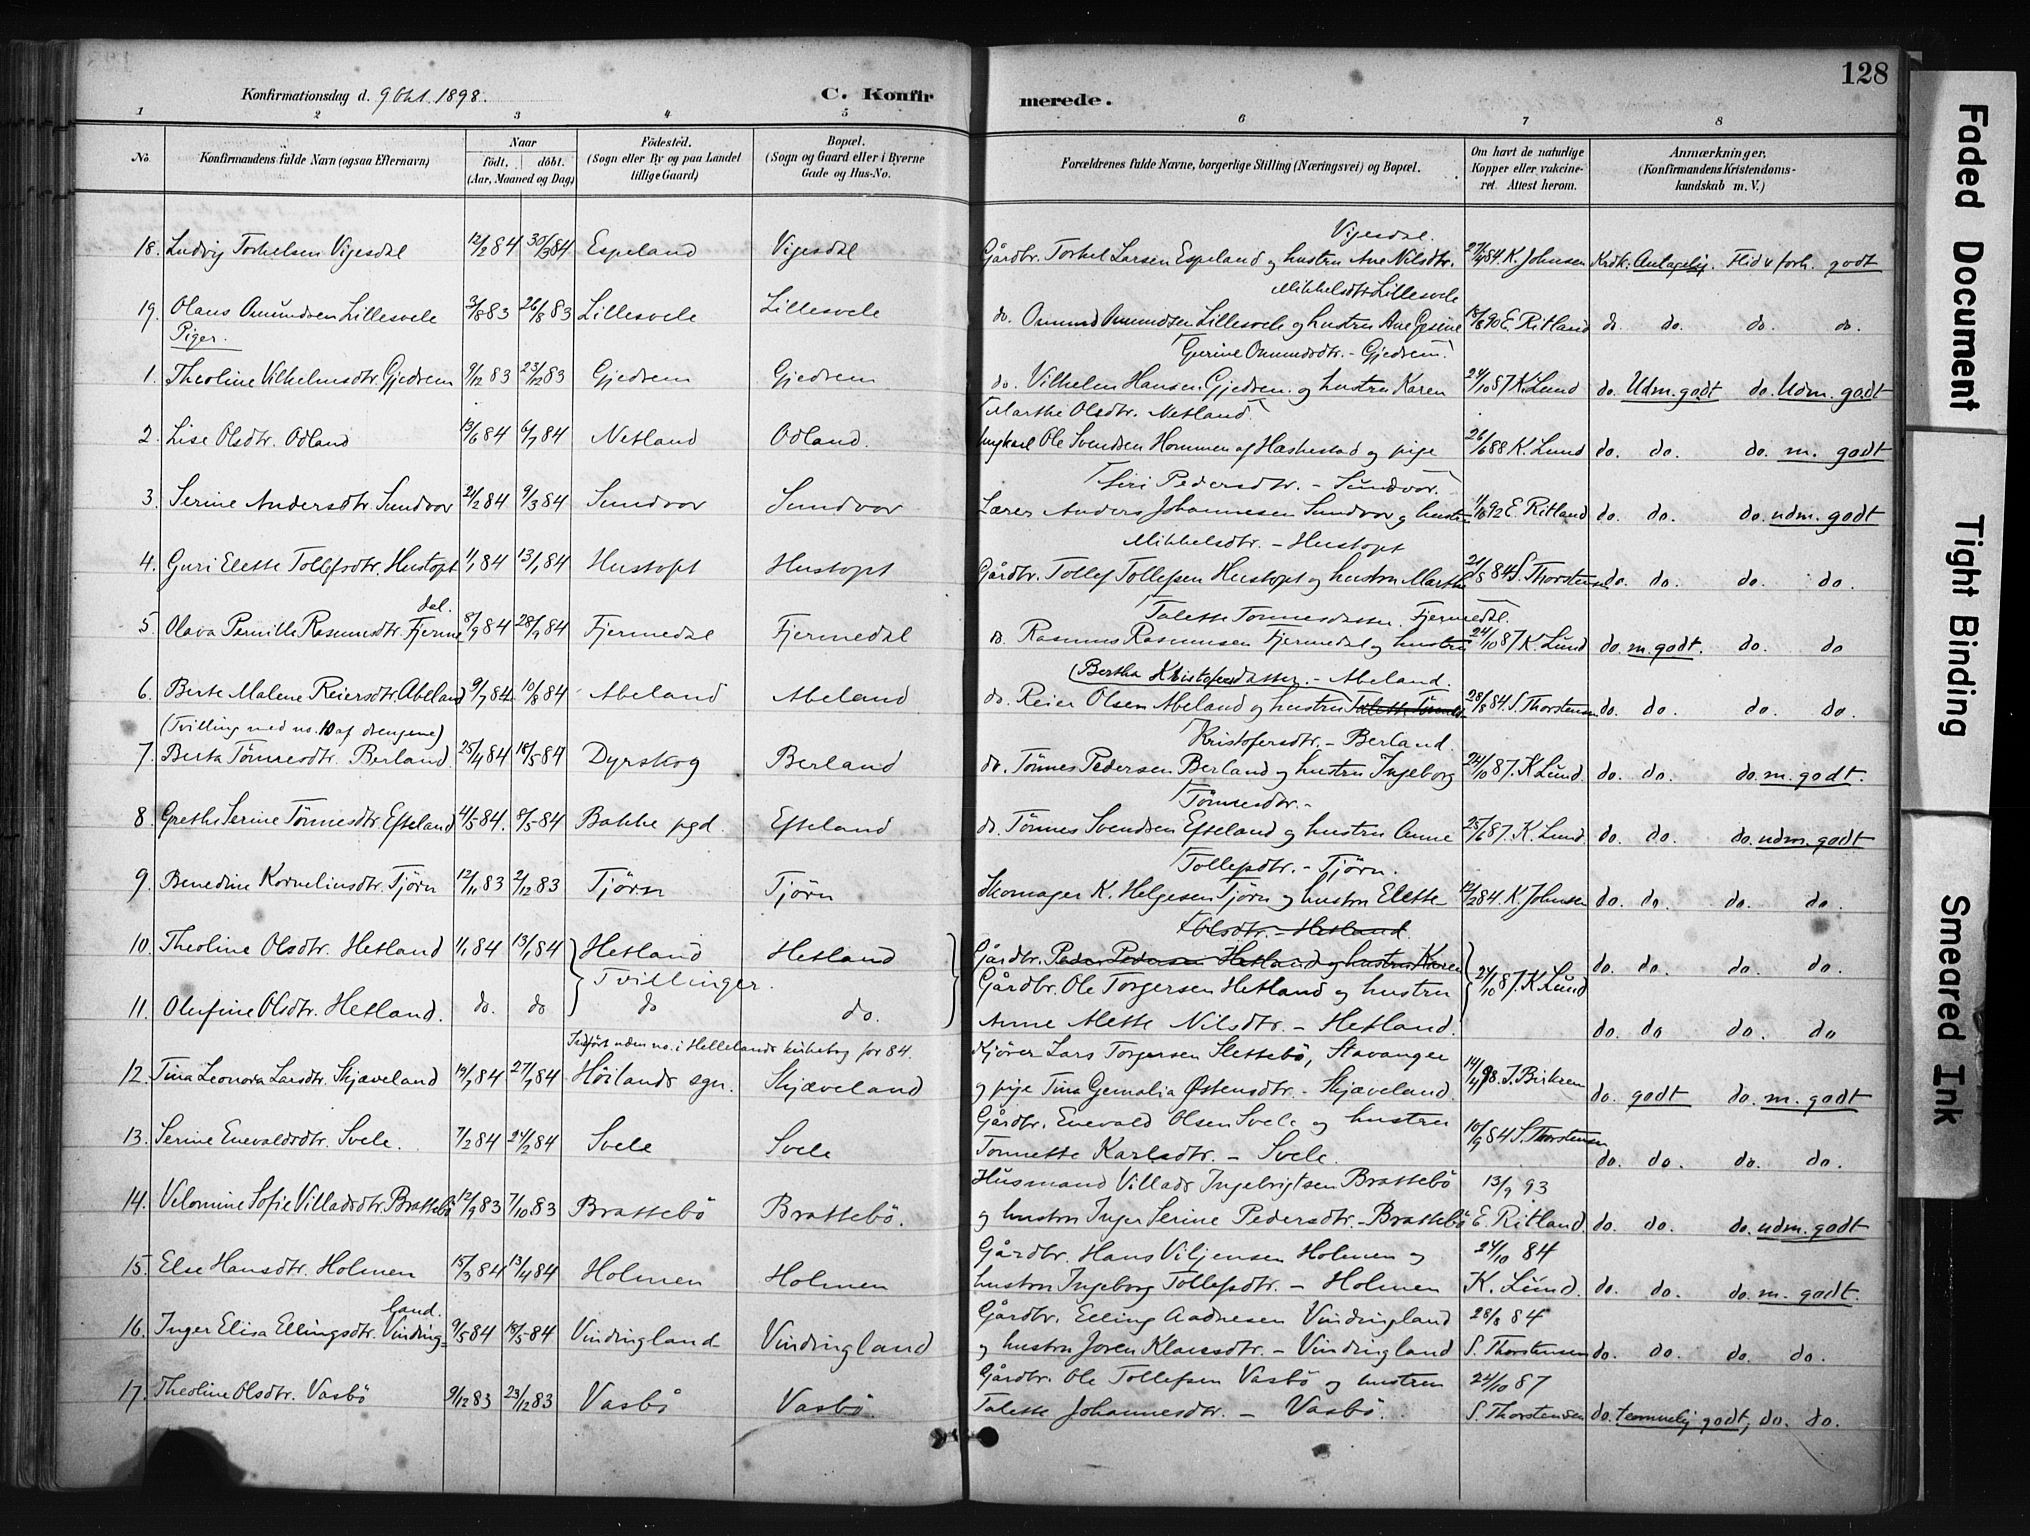 128
Konfirmationsdag d. 9 Okt. 1898.
C. Konfirmerede.
1 2 3 4 5 6 7 8
No. Konfirmandens fulde Navn (ogsaa Efternavn) Naar født, døbt. (Aar, Maaned og Dag) Fødested. (Sogn eller By og paa Landet tillige Gaard) Bopæl. (Sogn og Gaard eller i Byerne Gade og Hus-No. Forældrenes fulde Navne, borgerlige Stilling (Næringsvei) og Bopæl. Om havt de naturlige Kopper eller vakcineret. Attest herom. Anmærkninger. (Konfirmandens Kristendomskundskab m. V.)
Vigesdal.
18. Ludvig Torkelsen Vigesdal 12/2 84 30/3 84 Espeland Vigesdal Gårdbr. Torkel Larsen Espeland og hustru Ane Nilsdtr. 27/9 84. K. Johnsen Krdk. Antagelig. Flid & forh. godt
Mikkelsdtr. Lillesvele
19. Olaus Omundsen Lillesvele 3/8 83 26/8 83 Lillesvele Lillesvele do. Omund Omundsen Lillesvele og hustru Ane Gesine E. Ritland do. do. do. do.
Piger.
Gurine Omundsdtr. - Gjedrem.
1. Theoline Vilhelmsdtr. Gjedrem 9/12 83 23/12 83 Gjedrem Gjedrem do. Vilhelm Hansen Gjedrem og hustru Karen 24/10 87 K. Lund do. Udm. godt do. Udm. godt
Marthe Olsdtr. Netland
2. Lise Olsdtr. Odland 13/6 84 6/7 84 Netland Odland. Ungkarl Ole Svendsen Hommen af Hæskestad og pige 26/6 88 K. Lund do. do. do. m. godt
Siri Pedersdtr. - Sundvor.
3. Serine Andersdtr. Sundvor 21/2 84 9/3 84 Sundvor Sundvor Lærer Anders Johannesen Sundvor og hustru E. Ritland do. do. do. udm. godt
Mikkelsdtr. - Hustopt
4. Guri Elette Tollefsdtr. Hustopt 1/1 84 13/1 84 Hustopt Hustopt Gårdbr. Tollef Tollefsen Hustopt og hustru Marthe 21/5 84 S. Thorstensen do. do. do. do.
dal. Talette Tønnesdatter Fjermedal.
5. Olava Pernille Rasmusdtr. Fjerme 8/9 84 28/9 84 Fjermedal Fjermedal do. Rasmus Rasmusen Fjermedal og hustru 24/10 87 K. Lund do. m. godt. do. do
Bertha Kristofersdatter. - Abeland.
6. Berte Malene Reiersdtr. Abeland 9/7 84 10/8 84 Abeland Abeland do. Reier Olsen Abeland og hustru Talette Tønnes 28/8 84. S. Thorstensen do. do. do. do.
(Tvilling med no. 10 af drengene) Kristofersdtr. - Berland.
7. Berta Tønnesdtr. Berland. 25/4 84 18/5 84 Dyrskog Berland do. Tønnes Pedersen Berland og hustru Ingeborg 24/10 87. K Lund. do. do. do. m. godt.
Tønnesdtr. -
8. Grethe Serine Tønnesdtr. Efteland 4/5 84. 8/5 84 Bakke pgd. Efteland do. Tønnes Svendsen Efteland og hustru Anne 25/6 87. K. Lund. do. do. do. udm. godt
Tollefsdtr. - Tjørn.
9. Benedine Kornelinsdtr. Tjørn 12/11 83 2/12 83 Tjørn Tjørn Skomager K. Helgesen Tjørn og hustru Elette 12/2 84. K. Johnsen do. do. do. do.
Olsdtr. - Hetland.
10. Theoline Olsdtr. Hetland 1/1 84 13/1 84 Hetland Hetland Gårdbr. Peder Pedersen Hetland og hustru Karen do. do. do. do
Tvillinger. Gårdbr. Ole Torgersen Hetland og hustru 24/10 87. K Lund
11. Olufine Olsdtr. Hetland. do. do do do. Anne Alette Nilsdtr. - Hetland. do. do do. do
Indført uden no. i Hellelands kirkebog for 84. Kjører Lars Torgersen Slettebø, Stavanger
12. Tina Leonora Larsdtr. Skjæveland 19/7 84 27/7 84 Høilands sgn. Skjæveland og pige Tina Gemalia Østensdtr. - Skjæveland. 14/4 98. J. Birkrem do. godt do. m. godt
Gårdbr. Enevald Olsen Svele og hustru
13. Serine Enevaldsdtr. Svele. 7/2 84 24/2 84 Svele Svele Tonnette Karlsdtr. - Svele. 10/9 84 S. Thorstensen do. do. do. do.
Husmand Villads Ingebrigtsen Brattebø 13/9 93
14. Velomine Sofie Villadsdtr. Brattebø 12/9 83 7/10 83 Brattebö Brattebö. og hustru Inger Serine Pedersdtr. - Brattebø E. Ritland. do. do. do. udm. godt
Gårdbr. Hans Viljensen Holmen og 24/10 84
15. Else Hansdtr. Holmen 15/3 84 13/4 84 Holmen Holmen hustru Ingeborg Tollefsdtr. - Holmen K. Lund. do. do. do. m. godt.
land. Gårdbr. Elling Aadnesen Vindingland 28/8 84
16. Inger Elisa Ellingsdtr. Vinding= 9/5 84 18/5 84 Vindingland Vindingland og hustru Joren Klausdtr. - Vindingland S. Thorstensen do. do. do. do.
Gårdbr. Ole Tollefsen Vasbø og hustru 24/10 87
17. Theoline Olsdtr. Vasbø 9/12 83 23/12 83 Vasbø Vasbø. Talette Johannesdtr. - Vasbø. S. Thorstensen do. temmelig godt, do. do.
Faded Document
Tight Binding
Smeared Ink